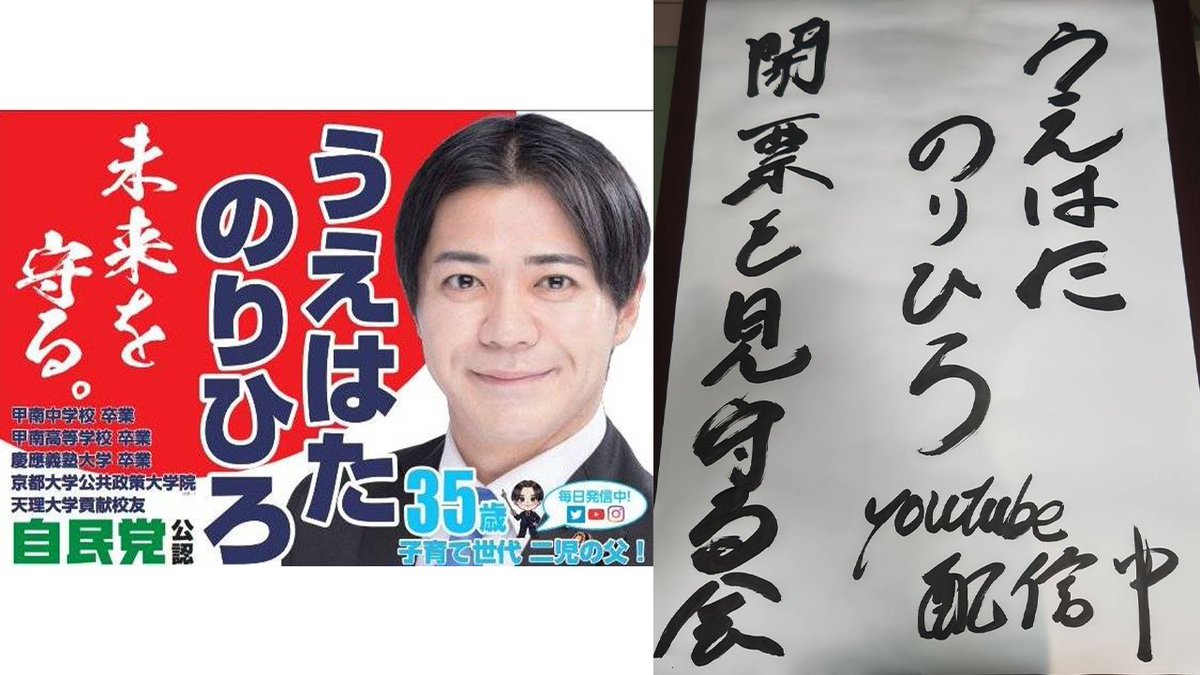 うえはた
のりひろ
未来を
守る。
甲南中学校 卒業
甲南高等学校 卒業
慶應義塾大学 卒業
京都大学公共政策大学院
天理大学貢献校友
自民党公認
35歳
毎日発信中!
子育て世代 二児の父！
うえはた
のりひろ
youtube
配信中
開票を見守る会